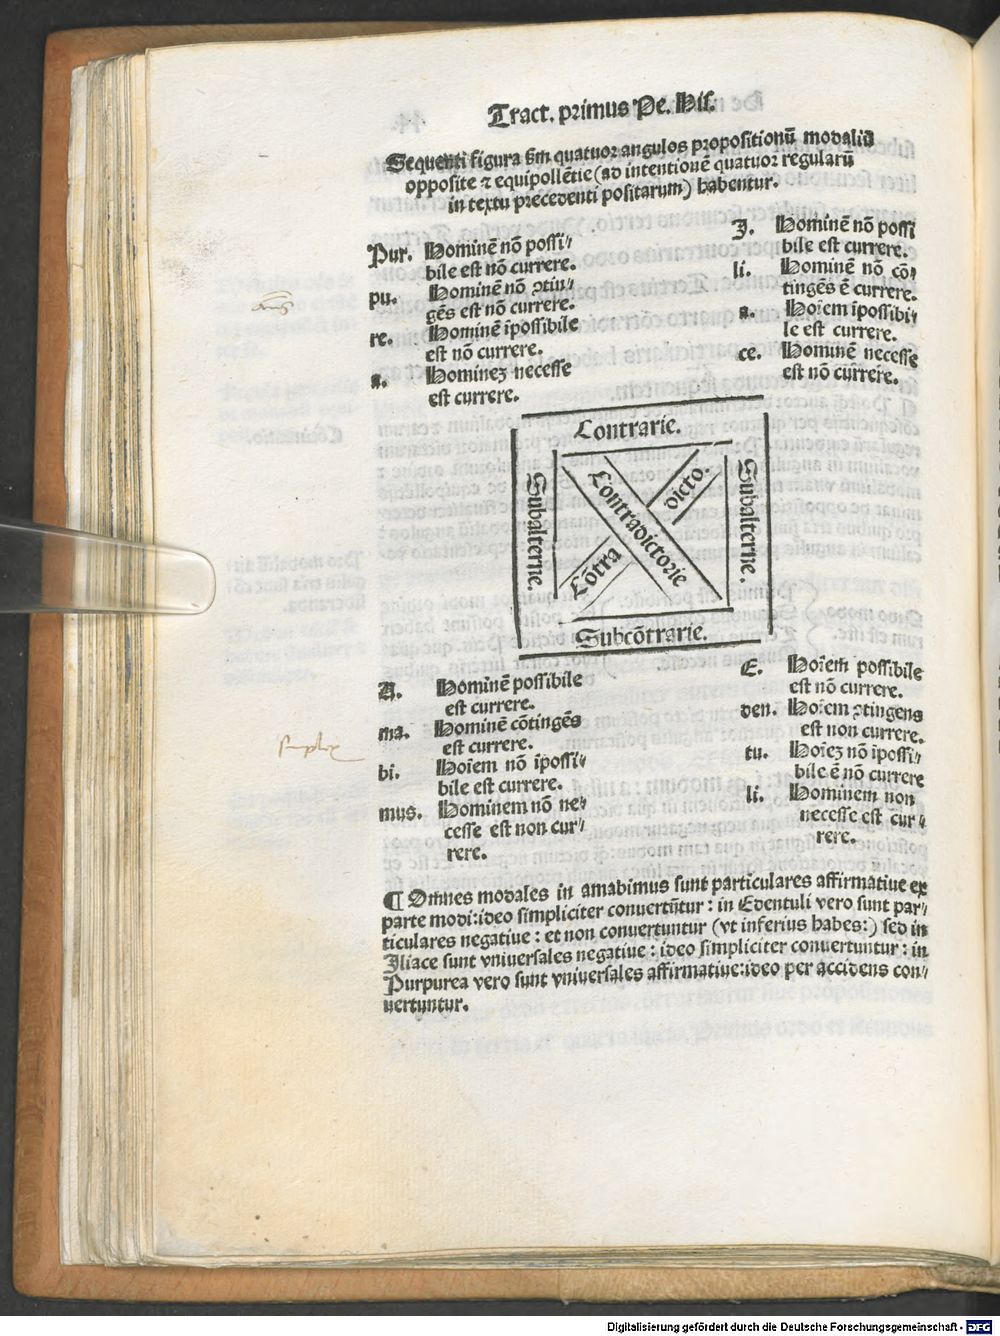 Tract. primus Pe. His.
Sequenti figura s̄m quatuor angulos propositionū modaliū
opposite ⁊ equipollētie (ad intentionē quatuor regularū
in textu precedenti positarum) habentur.
Pur. Hominē nō possi//
bile est nō currere.
pu. Hominē nō ꝯtin//
gēs est nō currere.
re. Hominē īpossibile
est nō currere.
a. Hominez necesse
est currere.
I. Hominē nō possi
bile est currere.
li. Hominē nō cō//
tingēs ē currere.
a. Hoīem īpossibi//
le est currere.
ce. Hominē necesse
est nō cūrrere.
Contrarie.
Subalterne.
Contradictorie
Cōtra
dicto.
Subalterne.
Subcōtrarie.
A. Hominē possibile
est currere.
ma. Hominē cōtingēs
est currere.
bi. Hoīem nō īpossi//
bile est currere.
mus. Hominem nō ne//
cesse est non cur//
rere.
E. Hoīem possibile
est nō currere.
den. Hoīem ꝯtingens
est non currere.
tu. Hoīez nō īpossi//
bile ē nō currere
li. Hominem non
necesse est cur//
rere.
simplex
¶ Omnes modales in amabimus sunt particulares affirmatiue ex
parte modi:ideo simpliciter conuertūtur : in Edentuli vero sunt par//
ticulares negatiue : et non conuertuntur (vt inferius habes:) sed in
Iliace sunt vniuersales negatiue : ideo simpliciter conuertuntur : in
Purpurea vero sunt vniuersales affirmatiue:ideo per accidens con//
uertuntur.
Digitalisierung gefördert durch die Deutsche Forschungsgemeinschaft - DFG